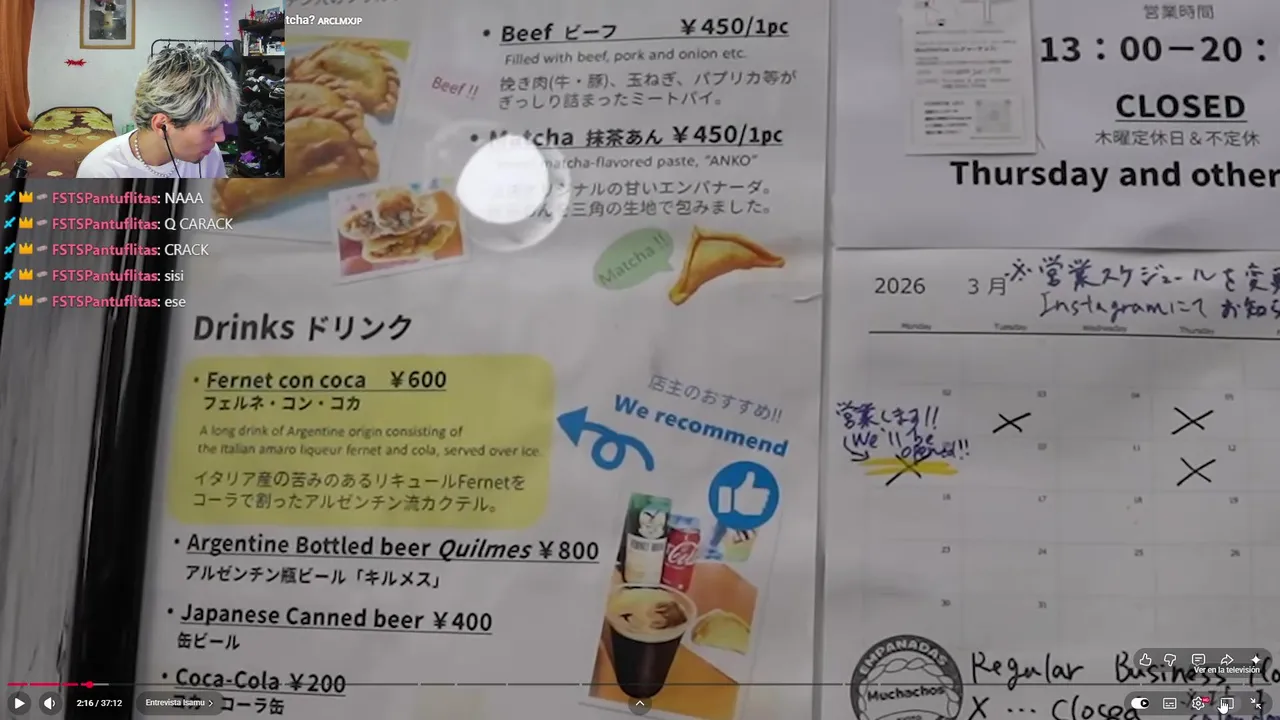 tcha? ARCLMXJP
FSTSPantuflitas: NAAA
FSTSPantuflitas: Q CARACK
FSTSPantuflitas: CRACK
FSTSPantuflitas: sisi
FSTSPantuflitas: ese
Beef !!
• Beef ビーフ ￥450/1pc
Filled with beef, pork and onion etc.
挽き肉(牛・豚)、玉ねぎ、パプリカ等が
ぎっしり詰まったミートパイ。
• Matcha 抹茶あん ￥450/1pc
matcha-flavored paste, "ANKO"
ナルの甘いエンパナーダ。
三角の生地で包みました。
Matcha !!
Drinks ドリンク
• Fernet con coca ￥600
フェルネ・コン・コカ
A long drink of Argentine origin consisting of
the Italian amaro liqueur fernet and cola, served over ice.
イタリア産の苦みのあるリキュールFernetを
コーラで割ったアルゼンチン流カクテル。
店主のおすすめ!!
We recommend
• Argentine Bottled beer Quilmes ￥800
アルゼンチン瓶ビール「キルメス」
• Japanese Canned beer ￥400
缶ビール
• Coca-Cola ￥200
コーラ缶
営業時間
13：00－20：
CLOSED
木曜定休日＆不定休
Thursday and other
2026 3 月
※営業スケジュールを変更
Instagramにて お知ら
Monday Tuesday Wednesday Thursday
02 03 04 05
営業します!!
We'll be
opened!!
10 11 12
16 17 18 19
23 24 25 26
30 31
EMPANADAS
Muchachos
Regular Business
X … Closed
Ver en la televisión
2:16 / 37:12
Entrevista Isamu